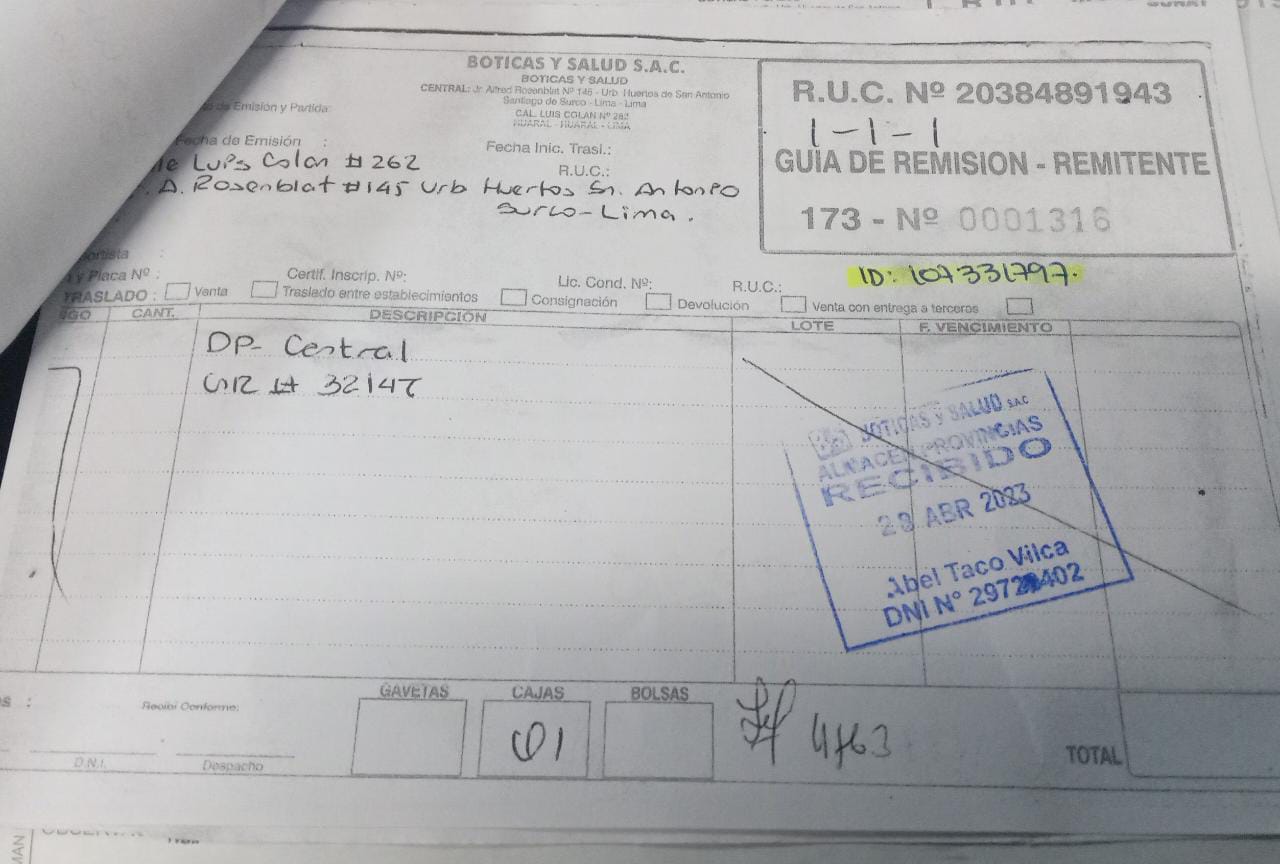 BOTICAS Y SALUD S.A.C.
BOTICAS Y SALUD
CENTRAL: Jr. Alfred Rosenblat Nº 145 - Urb. Huertos de San Antonio
Santiago de Surco - Lima - Lima
CAL. LUIS COLAN Nº 262
HUARAL - HUARAL - LIMA
R.U.C. Nº 20384891943
1-1-1
GUIA DE REMISION - REMITENTE
173 - Nº 0001316
de Emisión y Partida:
Fecha de Emisión :
Fecha Inic. Trasl.:
Luis Colan # 262
R.U.C.:
A. Rosenblat #145 Urb Huertos Sn. Antonio
Surco-Lima.
y Placa Nº :
Certif. Inscrip. Nº:
Lic. Cond. Nº:
R.U.C.:
ID: 107331797.
TRASLADO :
Venta
Traslado entre establecimientos
Consignación
Devolución
Venta con entrega a terceros
CANT.
DESCRIPCIÓN
LOTE
F. VENCIMIENTO
DP- Central
GR # 32147
BOTICAS y SALUD SAC
ALMACEN PROVINCIAS
RECIBIDO
28 ABR 2023
Abel Taco Vilca
DNI N°
Recibi Conforme:
D.N.I.
Despacho
GAVETAS
CAJAS
BOLSAS
01
4763
TOTAL